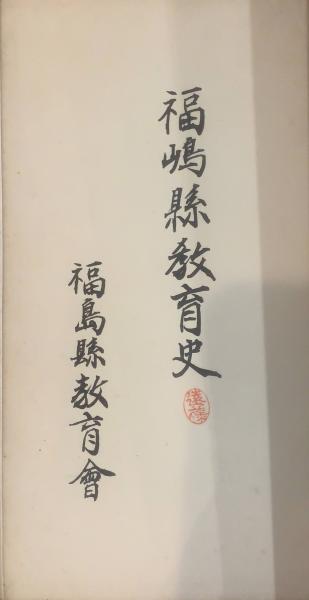 福嶋縣教育史
遠藤
福島縣教育會